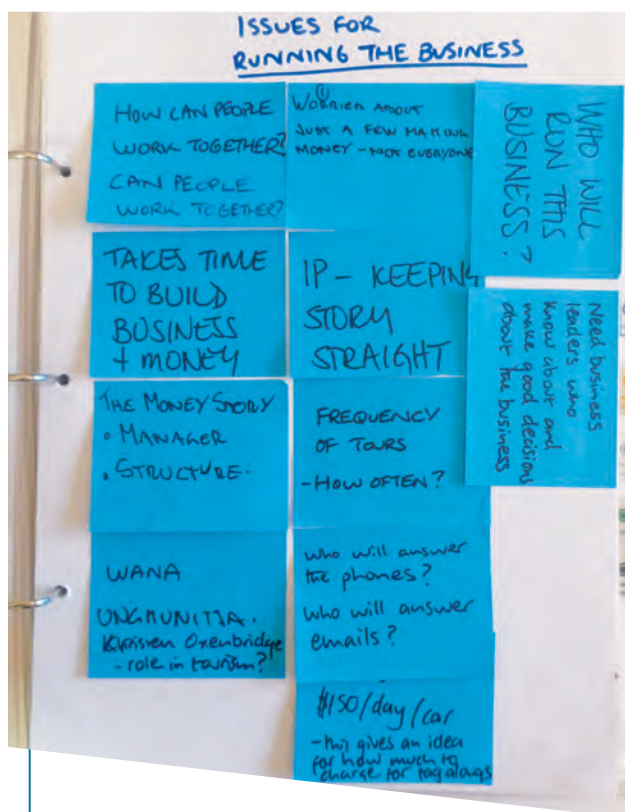 ISSUES FOR
RUNNING THE BUSINESS
HOW CAN PEOPLE
WORK TOGETHER?
CAN PEOPLE
WORK TOGETHER?
WORRIED ABOUT
JUST A FEW MAKING
MONEY - NOT EVERYONE
WHO WILL
RUN THIS
BUSINESS?
TAKES TIME
TO BUILD
BUSINESS
+ MONEY
IP - KEEPING
STORY
STRAIGHT
Need business
leaders who
know about and
make good decisions
about the business
THE MONEY STORY
• MANAGER
• STRUCTURE.
FREQUENCY
OF TOURS
- HOW OFTEN?
WANA
UNGKUNITJA.
Oxenbridge
- role in tourism?
who will answer
the phones?
who will answer
emails?
$150/day/car
- this gives an idea
for how much to
charge for tagalongs